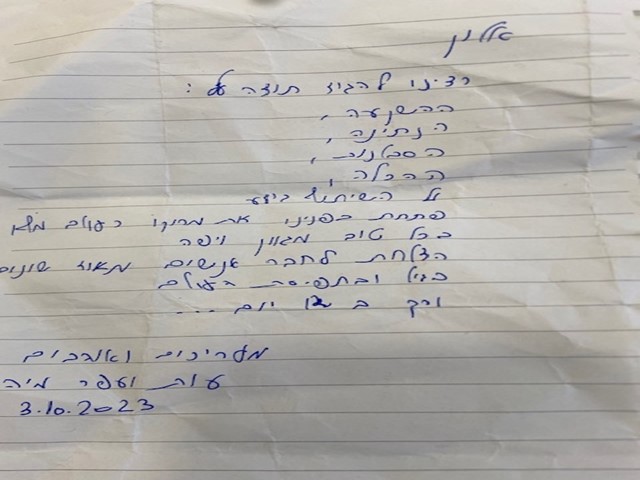 אלון
רצינו להגיד תודה על :
ההשקעה ,
הנתינה ,
הסבלנות ,
ההכלה ,
על השיתוף בידע
פתחת בפנינו את מרוקו כעולם מלא
בכל טוב מגוון ויפה
הצלחת לחבר אנשים מאוד שונים
בגיל ובתפיסת העולם
ורק ב יום ...
מעריכים ואוהבים
ועפר מיה
3.10.2023